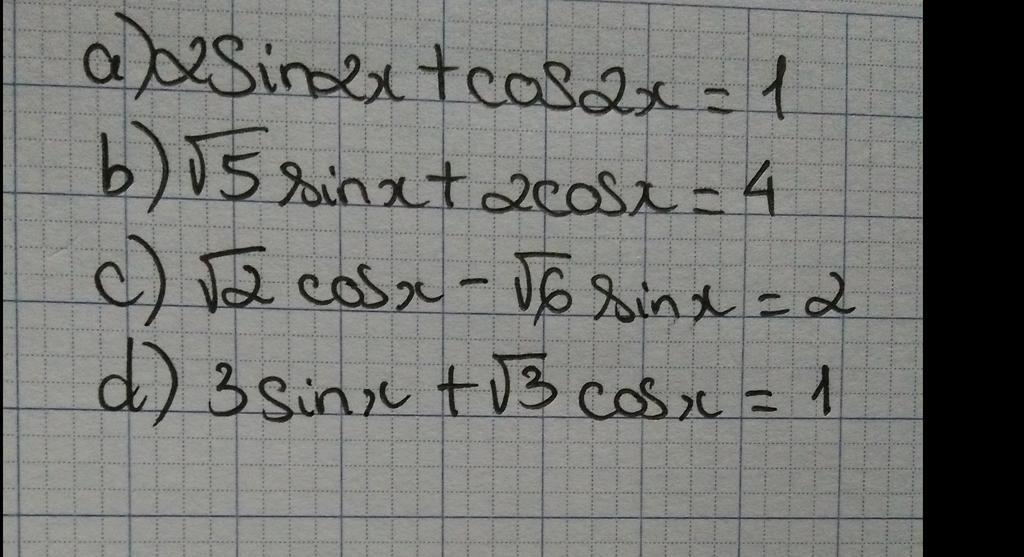 a) 2sin2x + cos2x = 1
b) √5 sinx + 2cosx = 4
c) √2 cosx - √6 sinx = 2
d) 3 sinx + √3 cosx = 1